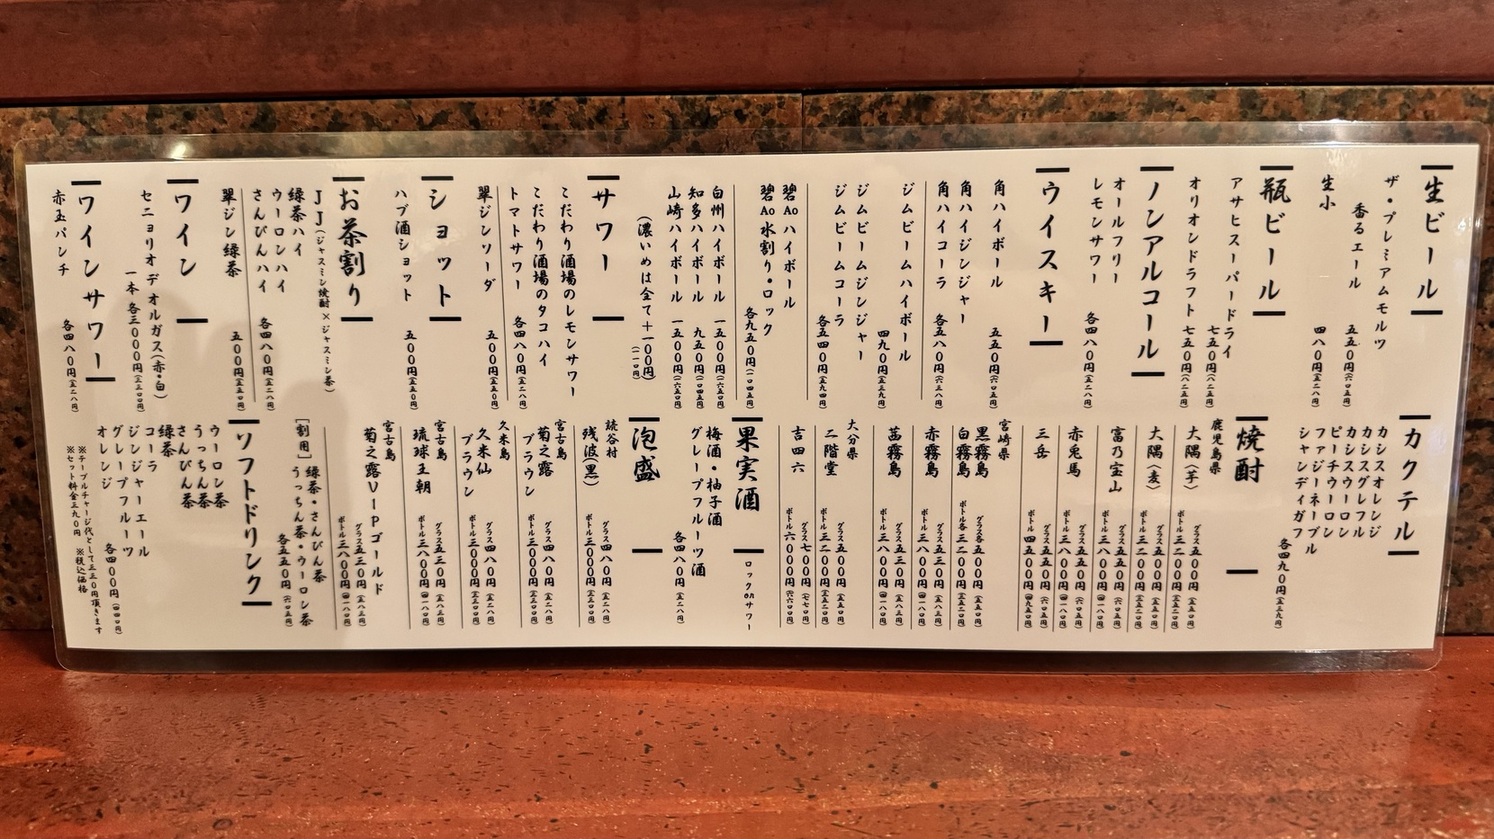 生ビール
ザ・プレミアムモルツ
香るエール 五五〇円(六〇五円)
生小 四八〇円(五二八円)
瓶ビール
アサヒスーパードライ 七五〇円(八二五円)
オリオンドラフト 七五〇円(八二五円)
ノンアルコール
オールフリー
レモンサワー 各四八〇円(五二八円)
ウイスキー
角ハイボール 五五〇円(六〇五円)
角ハイジンジャー
角ハイコーラ 各五八〇円(六三八円)
ジムビームハイボール 四九〇円(五三九円)
ジムビームジンジャー
ジムビームコーラ 各五四〇円(五九四円)
碧Aoハイボール
碧Ao水割り・ロック 各九五〇円
白州ハイボール 一五〇〇円(一六五〇円)
知多ハイボール 九五〇円(一〇四五円)
山崎ハイボール 一五〇〇円(一六五〇円)
(濃いめは全て+一〇〇円)(一一〇円)
サワー
こだわり酒場のレモンサワー
こだわり酒場のタコハイ
トマトサワー 各四八〇円(五二八円)
翠ジンソーダ 五〇〇円(五五〇円)
ショット
ハブ酒ショット 五〇〇円(五五〇円)
お茶割り
JJ(ジャスミン焼酎×ジャスミン茶)
緑茶ハイ
ウーロンハイ
さんぴんハイ 各四八〇円(五二八円)
翠ジン緑茶 五〇〇円(五五〇円)
ワイン
セニョリオ デ オルガス(赤・白)
一本 各三〇〇〇円(三三〇〇円)
ワインサワー
赤玉パンチ 各四八〇円(五二八円)
カクテル
カシスオレンジ
カシスグレフル
カシスウーロン
ピーチウーロン
ファジーネーブル
シャンディガフ 各四九〇円(五三九円)
焼酎
鹿児島県
大隅(芋) グラス五〇〇円(五五〇円) ボトル三二〇〇円(三五二〇円)
大隅(麦) グラス五〇〇円(五五〇円) ボトル三二〇〇円(三五二〇円)
富乃宝山 グラス五五〇円(六〇五円) ボトル三八〇〇円(四一八〇円)
赤兎馬 グラス五五〇円(六〇五円) ボトル三八〇〇円(四一八〇円)
三岳 ボトル四五〇〇円(四九五〇円)
宮崎県
黒霧島
白霧島 グラス各五〇〇円(五五〇円) ボトル各三二〇〇円(三五二〇円)
赤霧島 グラス五三〇円(五八三円) ボトル三八〇〇円(四一八〇円)
茜霧島 グラス五三〇円(五八三円) ボトル三八〇〇円(四一八〇円)
大分県
二階堂 グラス五〇〇円(五五〇円) ボトル三二〇〇円(三五二〇円)
吉四六 グラス七〇〇円(七七〇円) ボトル六〇〇〇円(六六〇〇円)
果実酒 ロックorサワー
梅酒・柚子酒
グレープフルーツ酒 各四八〇円(五二八円)
泡盛
読谷村
残波(黒) グラス四八〇円(五二八円) ボトル三〇〇〇円(三三〇〇円)
宮古島
菊之露ブラウン グラス四八〇円(五二八円) ボトル三〇〇〇円(三三〇〇円)
久米島
久米仙ブラウン グラス四八〇円(五二八円) ボトル三〇〇〇円(三三〇〇円)
宮古島
琉球王朝 グラス五三〇円(五八三円) ボトル三八〇〇円(四一八〇円)
宮古島
菊之露VIPゴールド グラス五三〇円(五八三円) ボトル三八〇〇円(四一八〇円)
[割用] 緑茶・さんぴん茶
うっちん茶・ウーロン茶 各五五〇円(六〇五円)
ソフトドリンク
ウーロン茶
うっちん茶
さんぴん茶
緑茶
コーラ
ジンジャーエール
グレープフルーツ
オレンジ 各四〇〇円(四四〇円)
※テーブルチャージ代として三三〇円頂きます
※セット料金三九〇円 ※税込価格